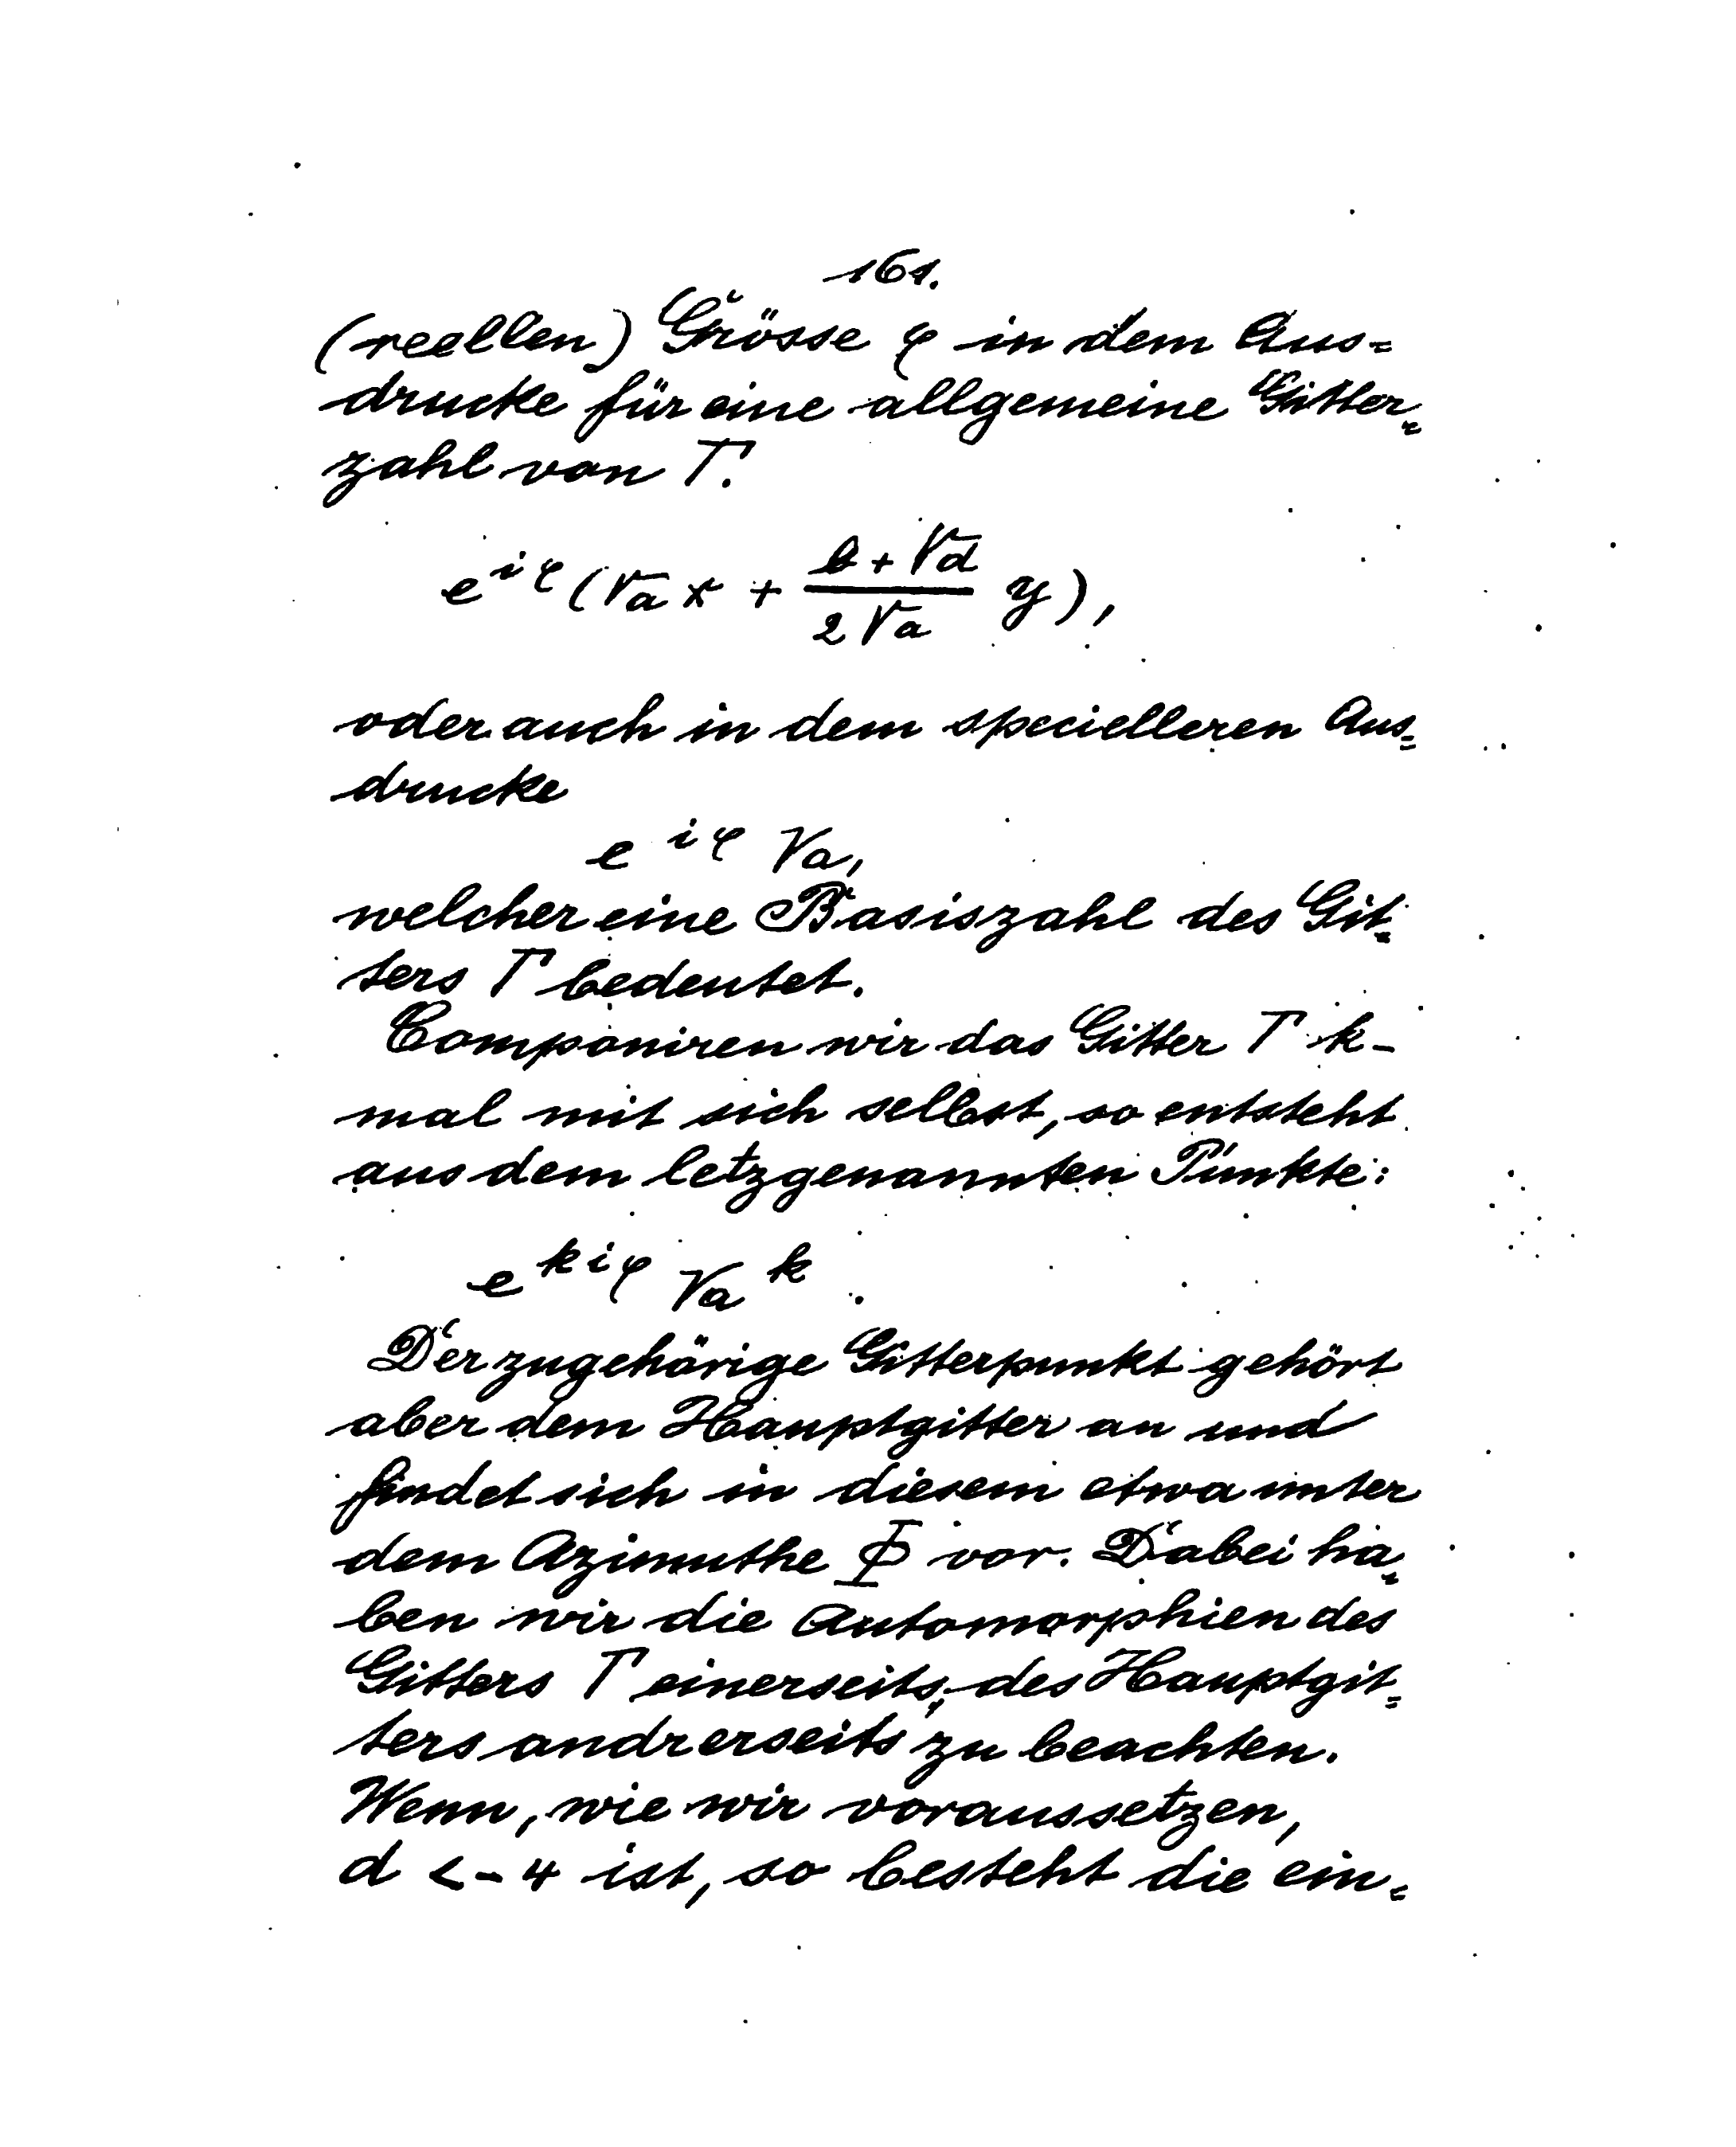 161.
(reellen) Grösse φ in dem Aus=
drucke für eine allgemeine Gitter=
zahl von Γ:
e^{iφ} (√a x + \frac{b + √d}{2 √a} y),
oder auch in dem specielleren Aus=
drucke
e^{iφ} √a,
welcher eine Basiszahl des Git=
ters Γ bedeutet.
Componiren wir das Gitter Γ k-
mal mit sich selbst, so entsteht
aus dem letzgenannten Punkte:
e^{kiφ} √a^k.
Der zugehörige Gitterpunkt gehört
aber dem Hauptgitter an und
findet sich in diesem etwa unter
dem Azimuthe Φ vor. Dabei ha=
ben wir die Automorphien des
Gitters Γ einerseits, des Hauptgit=
ters andrerseits zu beachten.
Wenn, wie wir voraussetzen,
d < -4 ist, so besteht die ein=